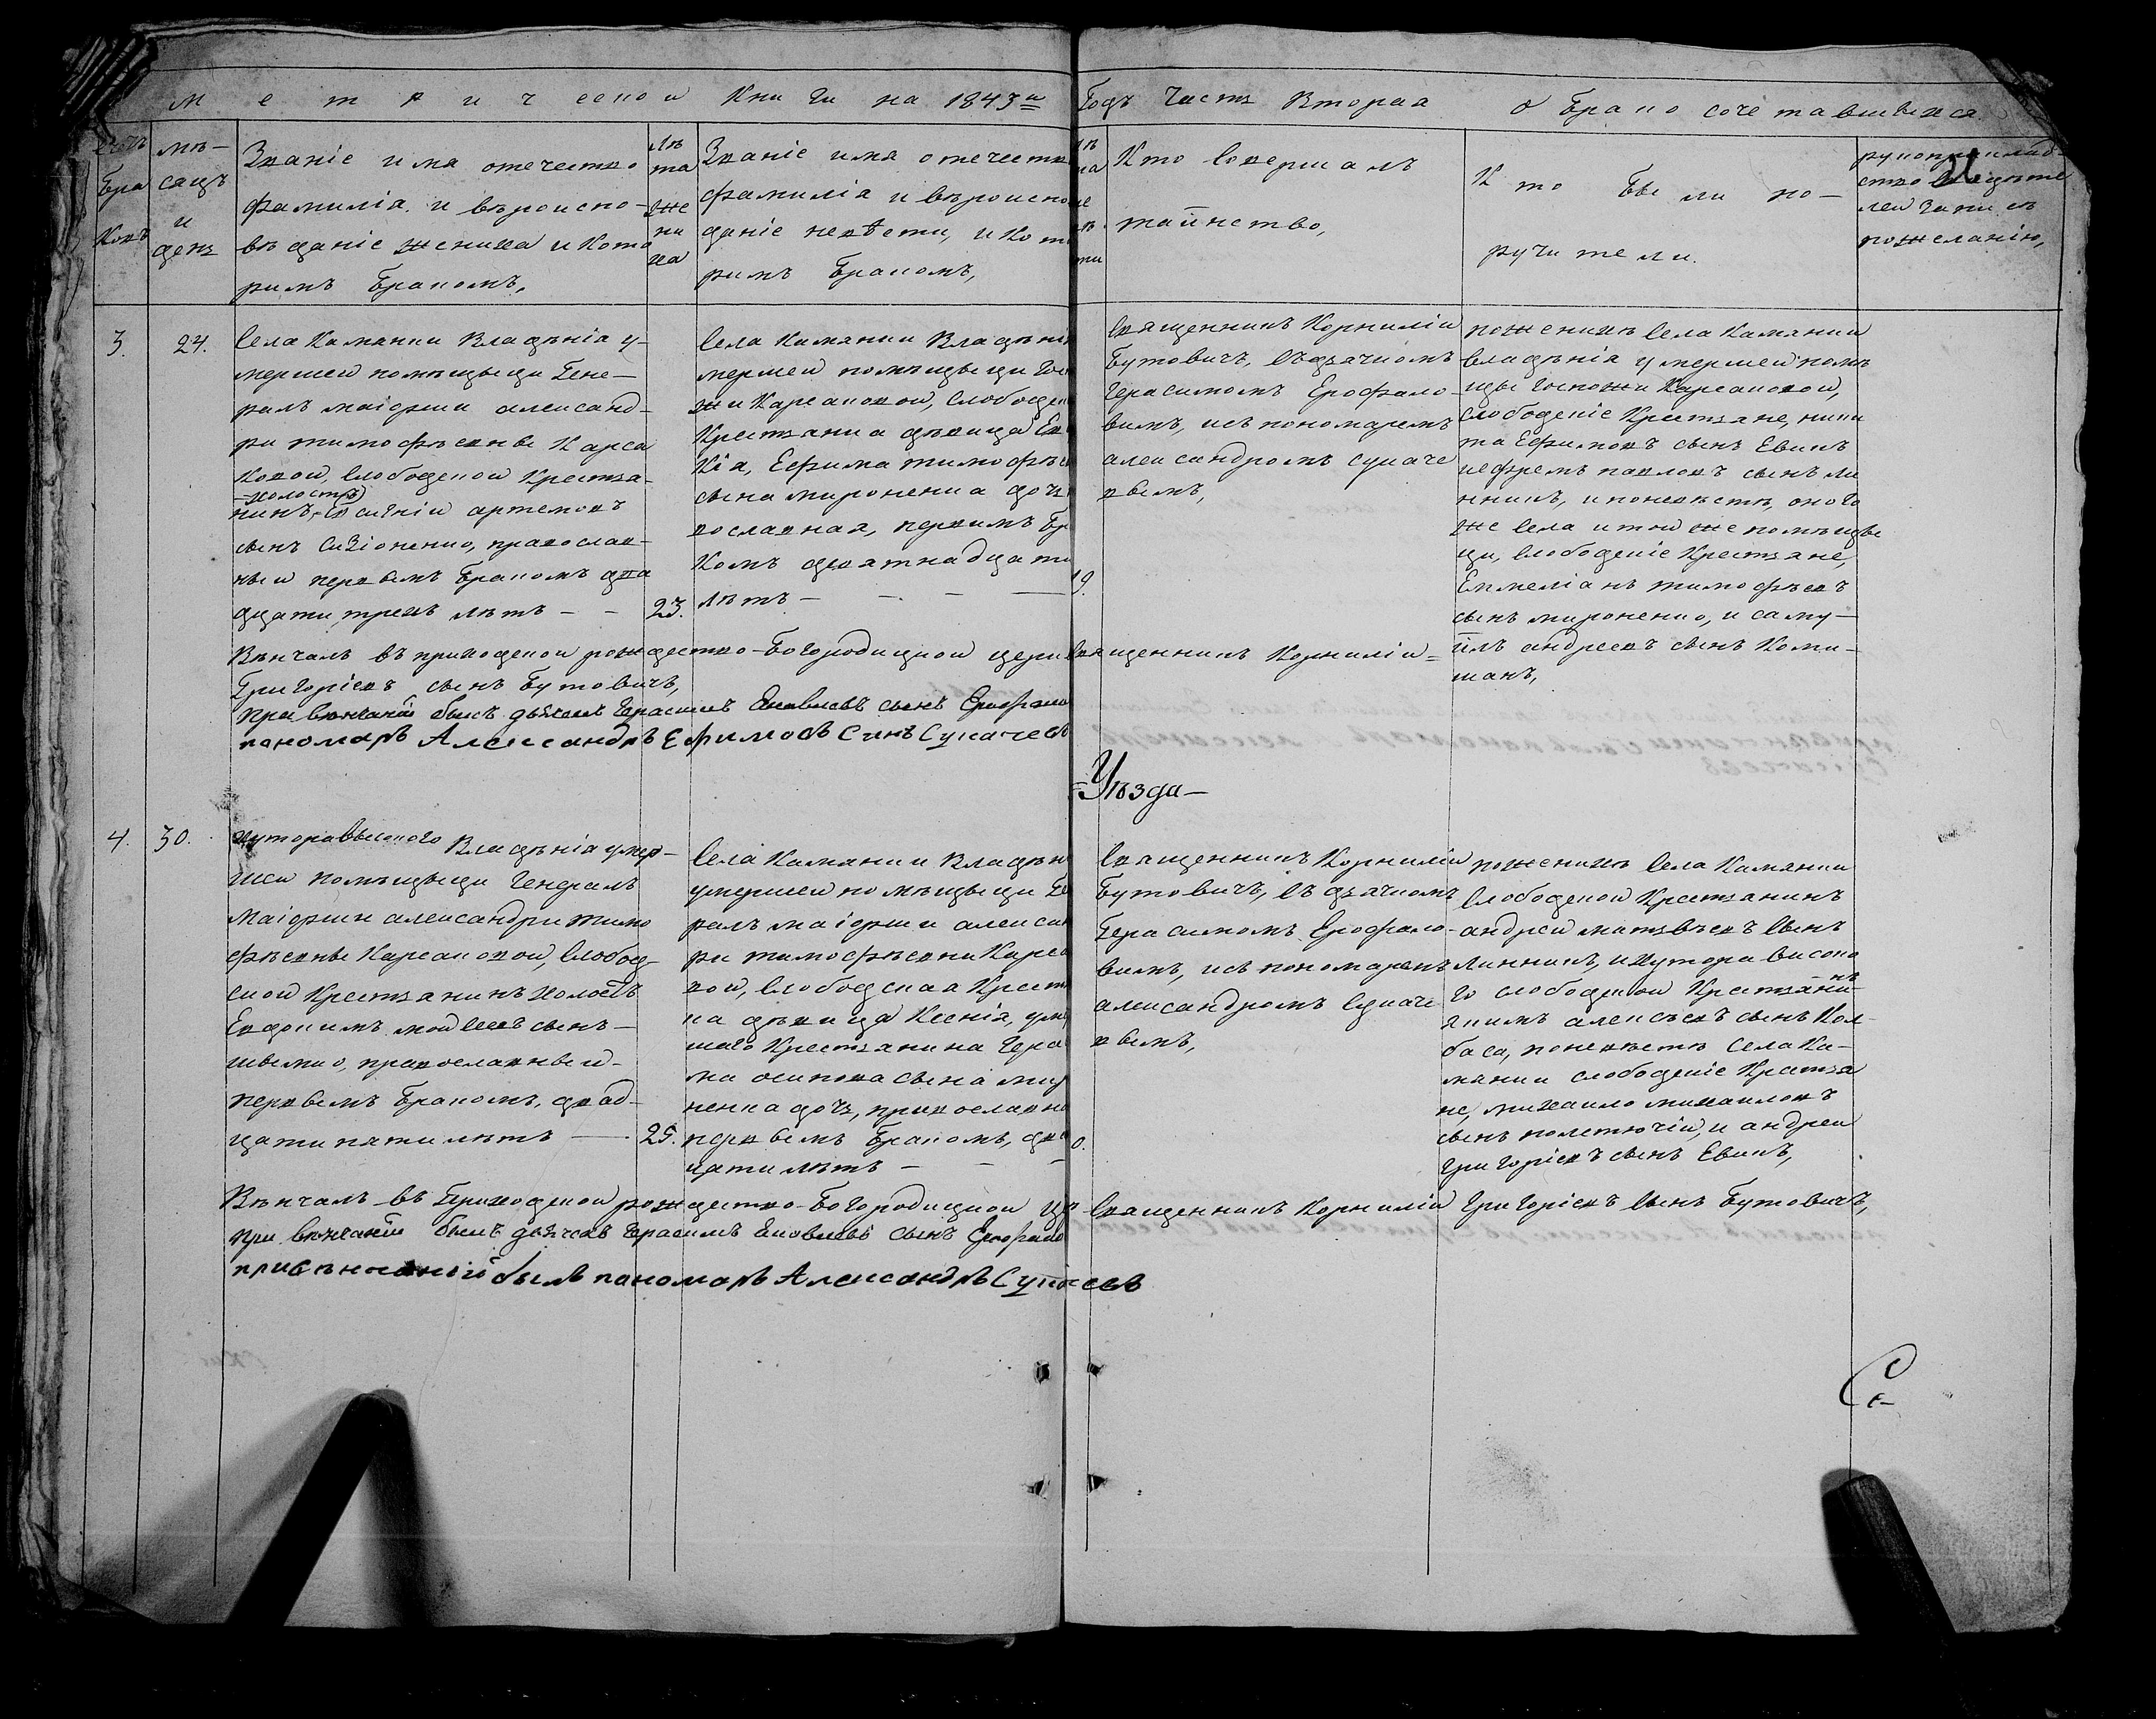 Метрической Книги на 1843й Годъ Часть Вторая о Бракосочетавшихся
Бра
ковъ
мѣ-
сяцъ
и
день
Званіе имя отечество
фамилія и вѣроиспо-
вѣданіе жениха и кото
римъ Бракомъ,
Лѣ
та
же
ни
ха
Званіе имя отечеств
фамилія и вѣроиспо
даніе невѣсти, и кото
римъ Бракомъ,
Кто Совершалъ
таинство,
Кто Были по-
ручители.
рукоприклад-
ство
пожеланію,
3.
24.
Села Камянки Владѣнія у-
мершей помѣщыци Гене-
ралъ маіорши александ-
ри тимофѣевны Карса
ковой, Слободской Крестья-
холостъ
нинъ, Евсигній артемовъ
сынъ Сизіоненко, православ-
ный первымъ Бракомъ два
дцати трехъ лѣтъ - -
23.
Села Камянки Владѣні
мершей помѣщыци Гос
жи Карсаковой, Слободск
Крестьянка дѣвица Ев
кія, Ефима тимофѣе
сына мироненка дочь
вославная, первимъ Бр
комъ девятнадцати
лѣтъ - - - -
19.
Священникъ Корнилій
Бутовичъ, Съ дьячкомъ
Герасимомъ Ерофало-
вимъ, и съ пономаремъ
александромъ Сукаче
вымъ,
пожениху Села Камянки
Владѣнія умершей помѣ
щыци Госпожи Карсаковой,
слободскіе Крестьяне, ники
та Ефимовъ сынъ Евикъ
и ефремъ павловъ сынъ ли
нникъ, и поневѣсти, оного
же Села и той же помѣщы
ци, Слободскіе Крестьяне,
Емеліанъ тимофѣевъ
сынъ мироненко, и саму-
илъ андреевъ сынъ Коми-
шанъ,
Вѣнчалъ въ приходской рождество-Богородицкой церк Священникъ Корнилій=
Григоріевъ сынъ Бутовичъ,
При вѣнчаніи былъ дьячекъ Герасимъ Яковлевъ сынъ Ерофало
пономаръ Александръ Ефимовъ Синъ Сукачевъ
=Уѣзда-
4.
30.
хутора Високого Владѣнія умер-
шей помѣщыци Генералъ
Маіорши александри тимо
фѣевны Карсаковой, Слобод-
ской Крестьянинъ холостъ
Евдокимъ сынъ-
православный-
первымъ Бракомъ, двад-
цати пяти лѣтъ -
25.
Села Камянки Владѣн
умершей помѣщыци Ге
ралъ маіорши алексан
ри тимофѣевни Карса
вой, Слободская Крестя
ка дѣвица Ксенія, уме
шаго Крестьянина Гера
ма осипова сына мир
ненка дочь, православна
первымъ Бракомъ, два
цати лѣтъ - - -
0.
Священникъ Корнилій
Бутовичъ, Съ дьячкомъ
Герасимомъ Ерофало-
вимъ, и съ пономаремъ
александромъ Сукаче
вымъ,
пожениху Села Камянки
Слободской Крестьянинъ
андрей матвѣевъ Сынъ
Линникъ, и хутора Високо
го слободской Крестьяни-
нъ
якимъ алексѣевъ сынъ Кол-
баса, поневѣсти Села Ка-
мянки слободскіе Крестья
не, михаило михаиловъ
сынъ полетючій, и андрей
Григоріевъ сынъ Евикъ,
Вѣнчалъ въ Приходской рождество-Богородицкой цр Священникъ Корнилій Григоріевъ Сынъ Бутовичъ,
При вѣнчаніи былъ дьячекъ Герасимъ Яковлевъ сынъ Ерофало
при вѣнчаніи былъ пономаръ Александръ Сукачевъ